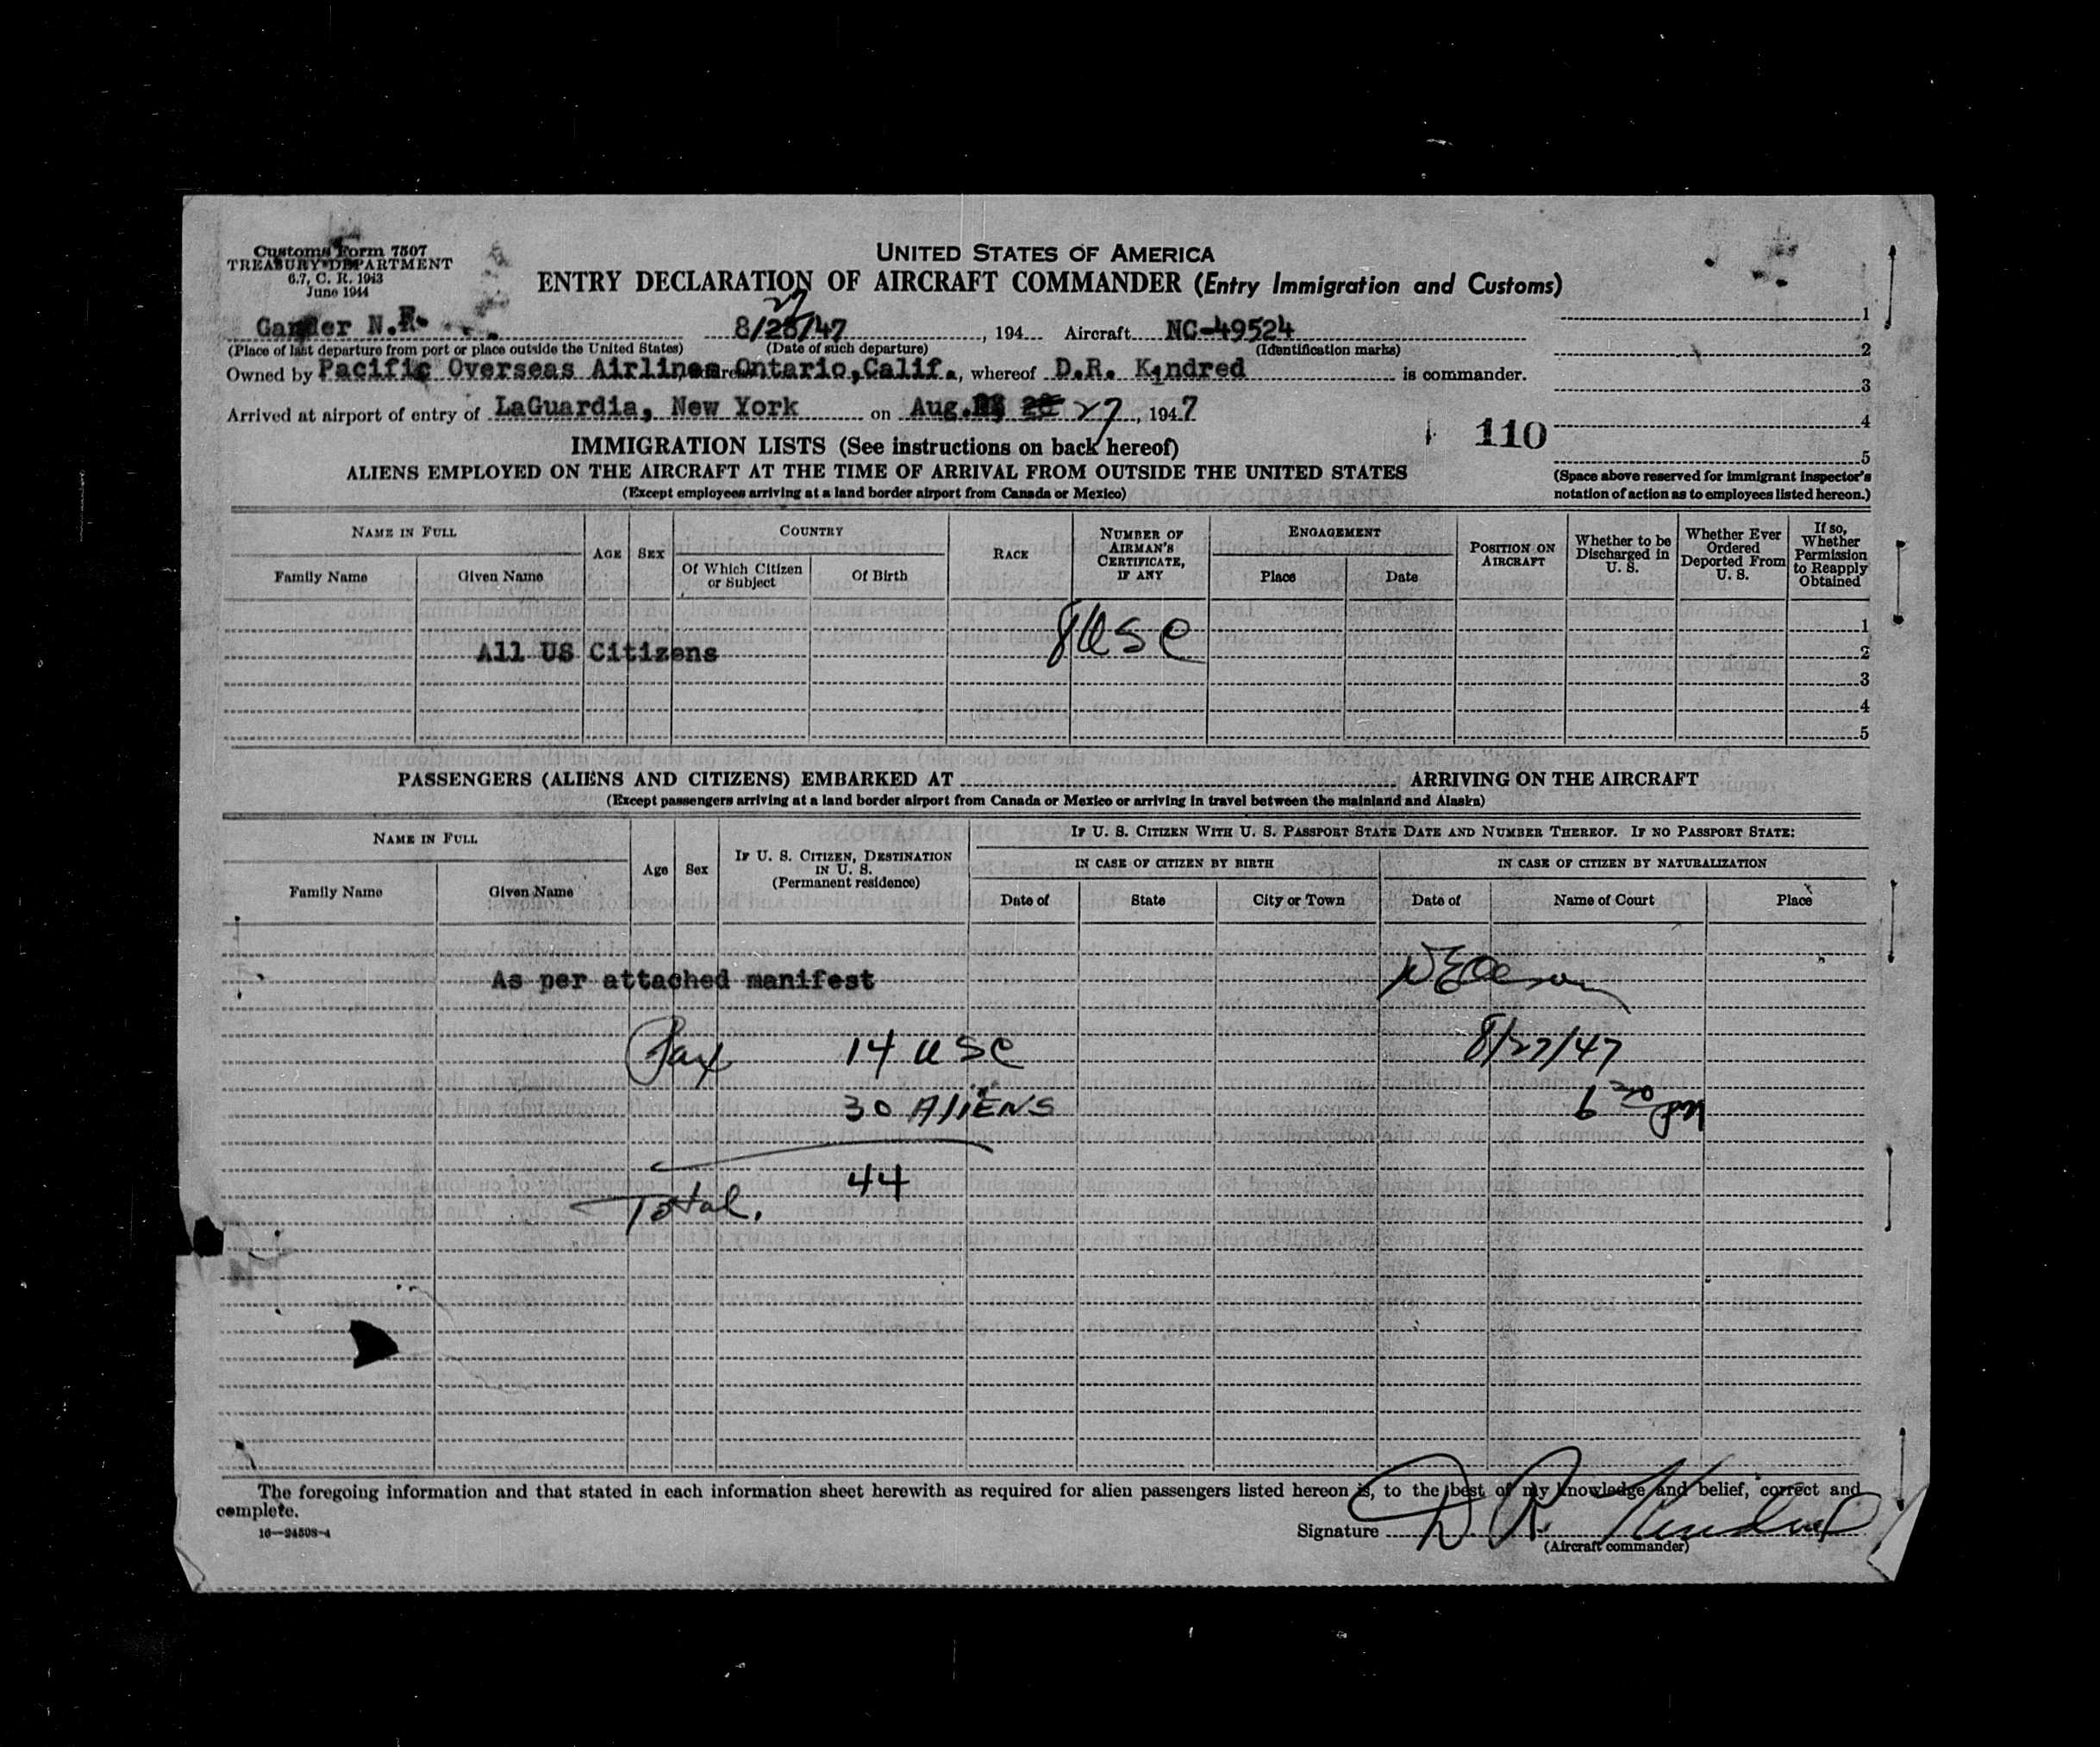 Customs Form 7507
TREASURY DEPARTMENT
6.7, C. R. 1943
June 1944
UNITED STATES OF AMERICA
ENTRY DECLARATION OF AIRCRAFT COMMANDER (Entry Immigration and Customs)
27
Gander N.F. 8/26/47, 194 Aircraft NC-49524 1
(Place of last departure from port or place outside the United States) (Date of such departure) (Identification marks) 2
Owned by Pacific Overseas Airlines Ontario, Calif., whereof D.R. Kindred is commander. 3
Arrived at airport of entry of LaGuardia, New York on Aug. 27, 1947 4
IMMIGRATION LISTS (See instructions on back hereof) 110 5
ALIENS EMPLOYED ON THE AIRCRAFT AT THE TIME OF ARRIVAL FROM OUTSIDE THE UNITED STATES
(Except employees arriving at a land border airport from Canada or Mexico)
(Space above reserved for immigrant inspector's
notation of action as to employees listed hereon.)
NAME IN FULL
Family Name Given Name
AGE SEX
COUNTRY
Of Which Citizen or Subject Of Birth
RACE
NUMBER OF AIRMAN'S CERTIFICATE, IF ANY
ENGAGEMENT
Place Date
POSITION ON AIRCRAFT
Whether to be Discharged in U. S.
Whether Ever Ordered Deported From U. S.
If so, Whether Permission to Reapply Obtained
1
All US Citizens 8 USC 2
3
4
5
PASSENGERS (ALIENS AND CITIZENS) EMBARKED AT ARRIVING ON THE AIRCRAFT
(Except passengers arriving at a land border airport from Canada or Mexico or arriving in travel between the mainland and Alaska)
NAME IN FULL
Family Name Given Name
Age Sex
IF U. S. CITIZEN, DESTINATION IN U. S. (Permanent residence)
IF U. S. CITIZEN WITH U. S. PASSPORT STATE DATE AND NUMBER THEREOF. IF NO PASSPORT STATE:
IN CASE OF CITIZEN BY BIRTH IN CASE OF CITIZEN BY NATURALIZATION
Date of State City or Town Date of Name of Court Place
As per attached manifest
Pax 14 USC 8/27/47
30 ALIENS 6 30 pm
44
Total.
The foregoing information and that stated in each information sheet herewith as required for alien passengers listed hereon is, to the best of my knowledge and belief, correct and
complete.
16—24508-4
Signature D R. Kindred
(Aircraft commander)